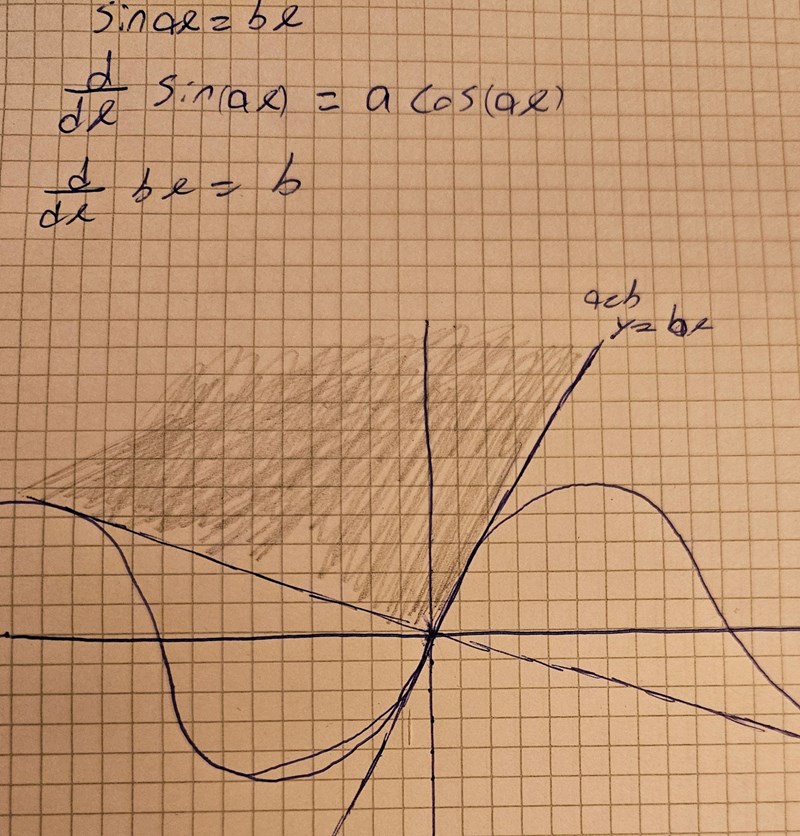 sin ax = bx
d/dx sin(ax) = a cos(ax)
d/dx bx = b
a<b
y = bx